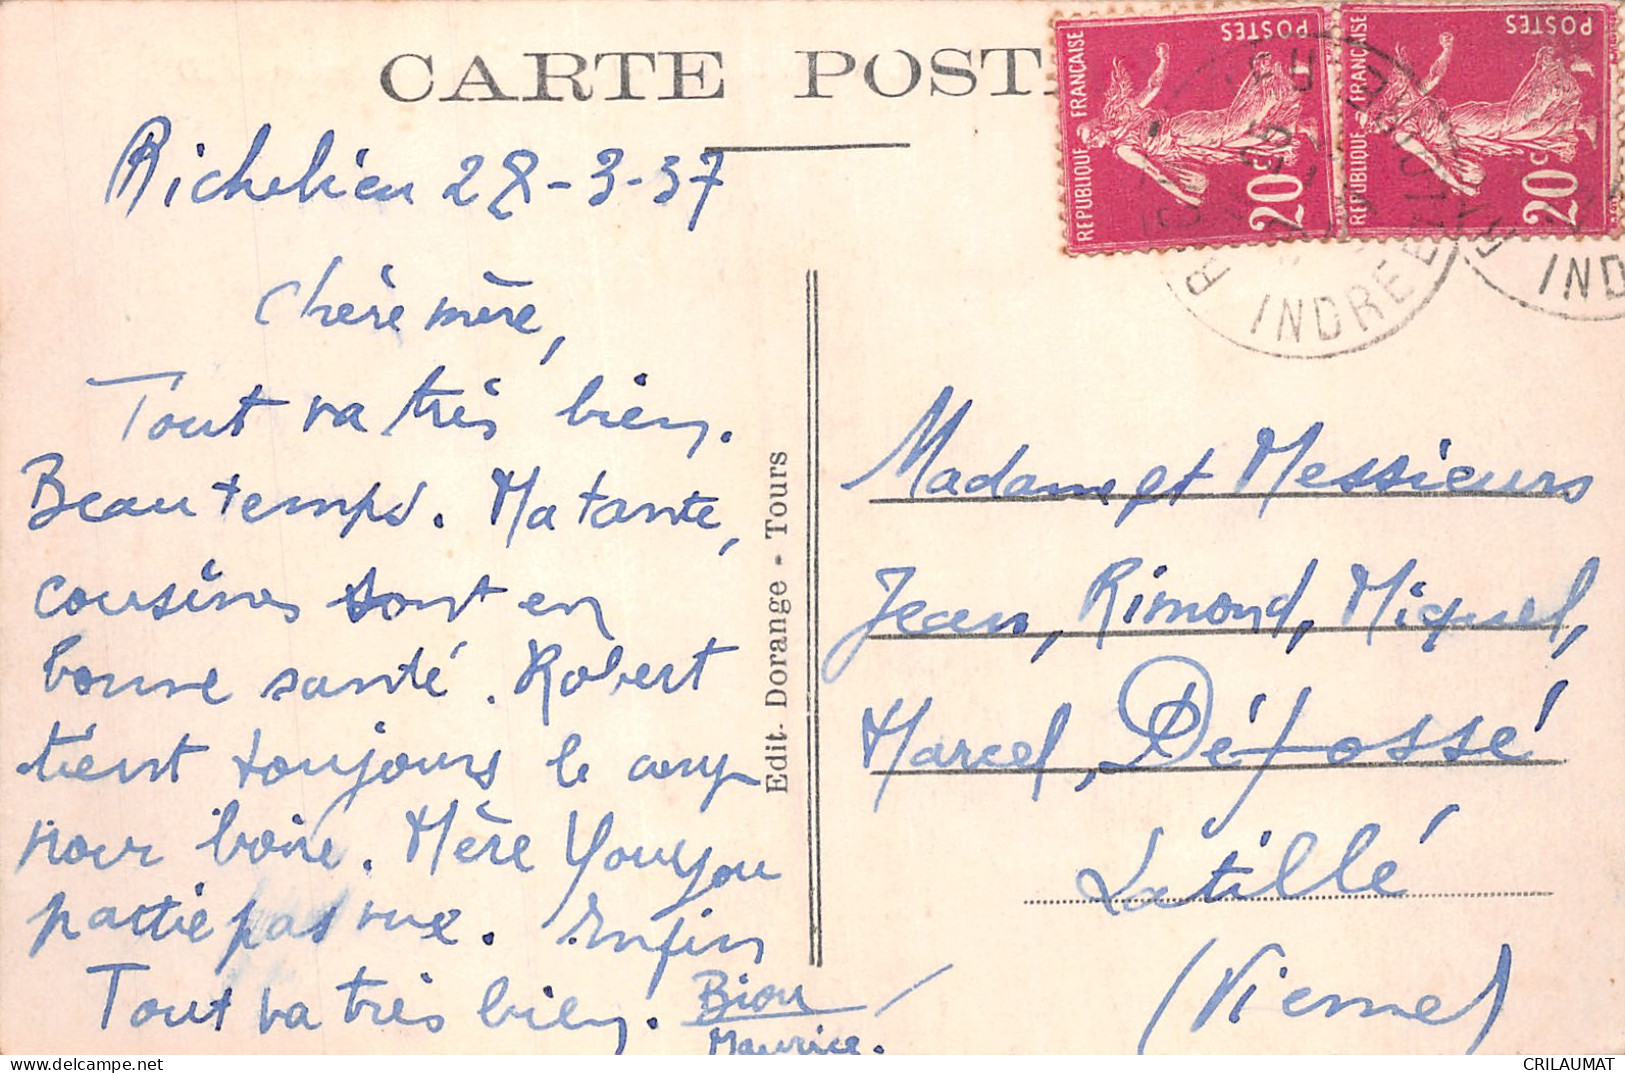 CARTE POST
Richelieu 28-3-37
Chère mère,
Tout va très bien.
Beau temps. Ma tante,
cousines sont en
bonne santé. Robert
tient toujours le coup
pour boire. Mère Youyou
partie pas vue. Enfin
Tout va très bien. Biou
Maurice.
Edit. Dorange - Tours
REPUBLIQUE FRANÇAISE
POSTES
20c
REPUBLIQUE FRANÇAISE
POSTES
20c
INDRE
IND
Madame et Messieurs
Jean, Rimond, Miquel,
Marcel, Défossé
Latillé
(Vienne)
delcampe.net
CRILAUMAT